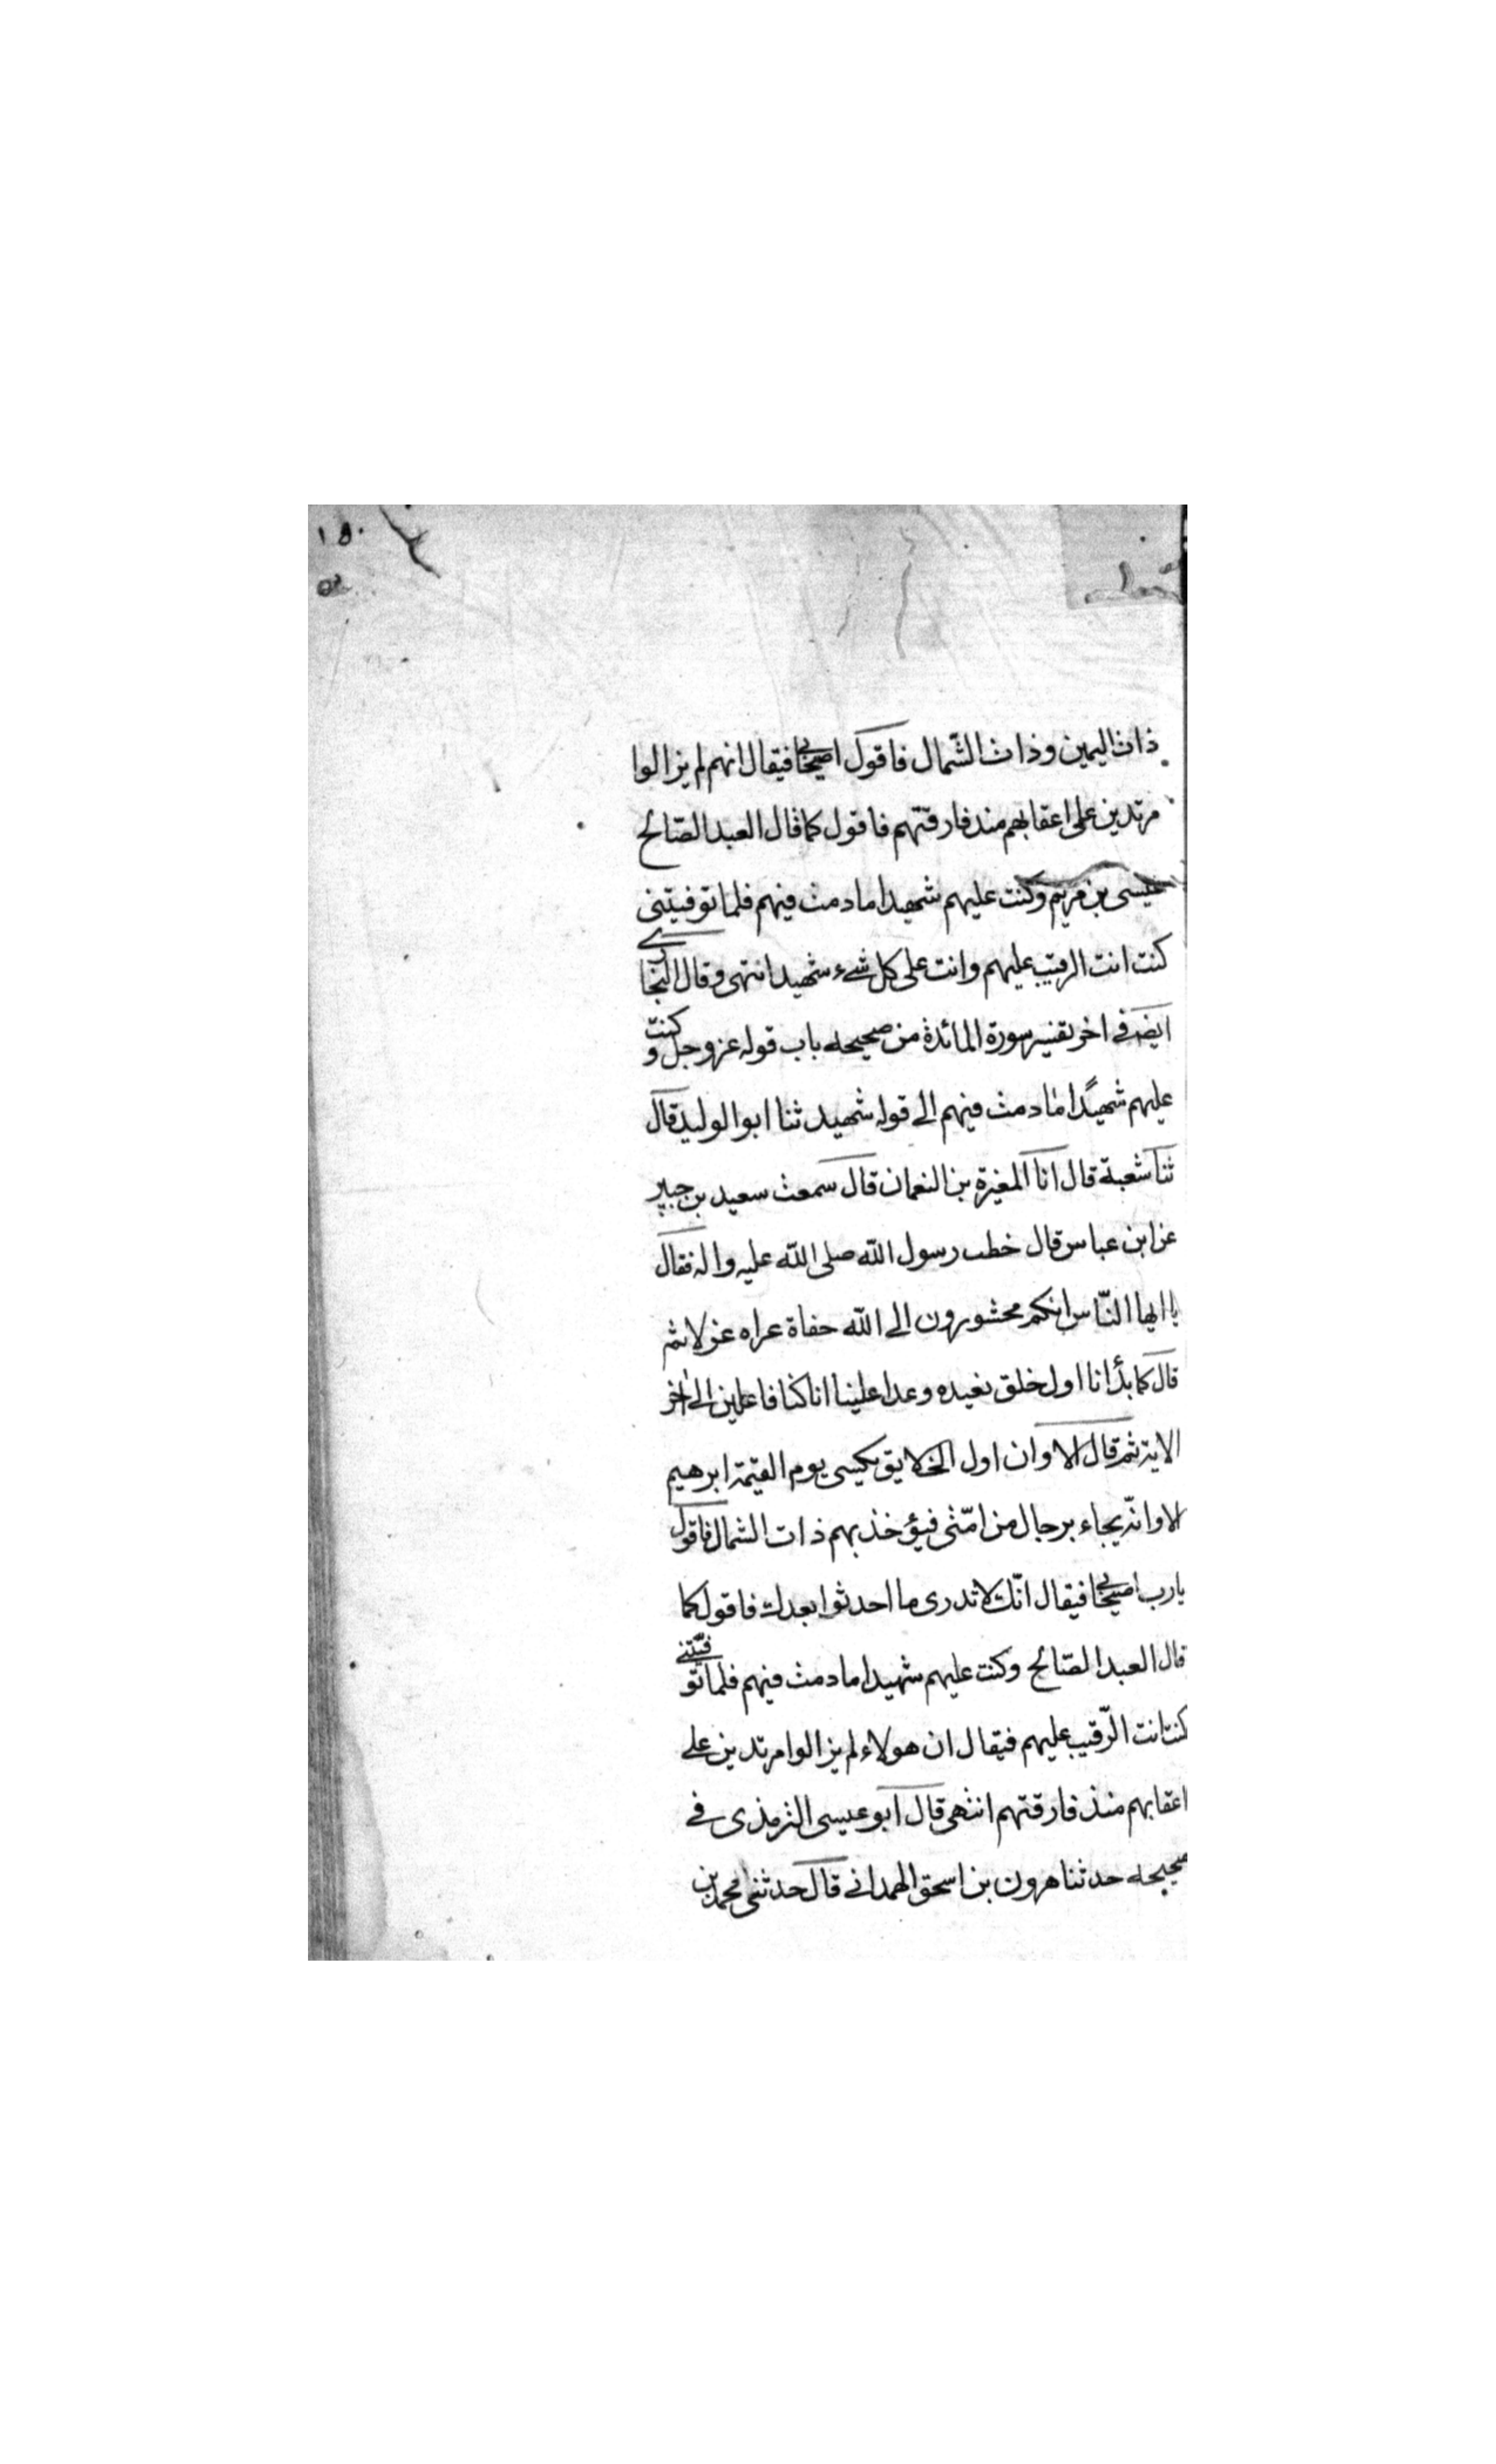 ١٥٠
ذات اليمين وذات الشمال فاقول اصيحابي فيقال انهم لم يزالوا
مرتدين على اعقابهم منذ فارقتهم فاقول كما قال العبد الصالح
عيسى بن مريم وكنت عليهم شهيدا ما دمت فيهم فلما توفيتنى
كنت انت الرقيب عليهم وانت على كل شىء شهيد انتهى وقال البخارى
ايضا فى اخر تفسير سورة المائدة من صحيحه باب قوله عز وجل وكنت
عليهم شهيدًا ما دمت فيهم الى قوله شهيد ثنا ابو الوليد قال
ثنا شعبة قال انا المغيرة بن النعمان قال سمعت سعيد بن جبير
عن ابن عباس قال خطب رسول الله صلى الله عليه واله فقال
يا ايها النّاس انكم محشورون الى الله حفاة عراه غرلا ثم
قال كما بدأنا اول خلق نعيده وعدا علينا انا كنا فاعلين الى اخر
الاية ثم قال الا وان اول الخلايق يكسى يوم القيمة ابرهيم
الا وانّه يجاء برجال من امّتى فيؤخذ بهم ذات الشمال فاقول
يارب اصيحابي فيقال انّك لا تدرى ما احدثوا بعدك فاقول كما
قال العبد الصّالح وكنت عليهم شهيدا ما دمت فيهم فلما توفّيتنى
كنت انت الرّقيب عليهم فيقال ان هولاء لم يزالوا مرتدين على
اعقابهم منذ فارقتهم انتهى قال ابو عيسى الترمذى فى
صحيحه حدثنا هرون بن اسحق الهمدانى قال حدثنى محمد بن